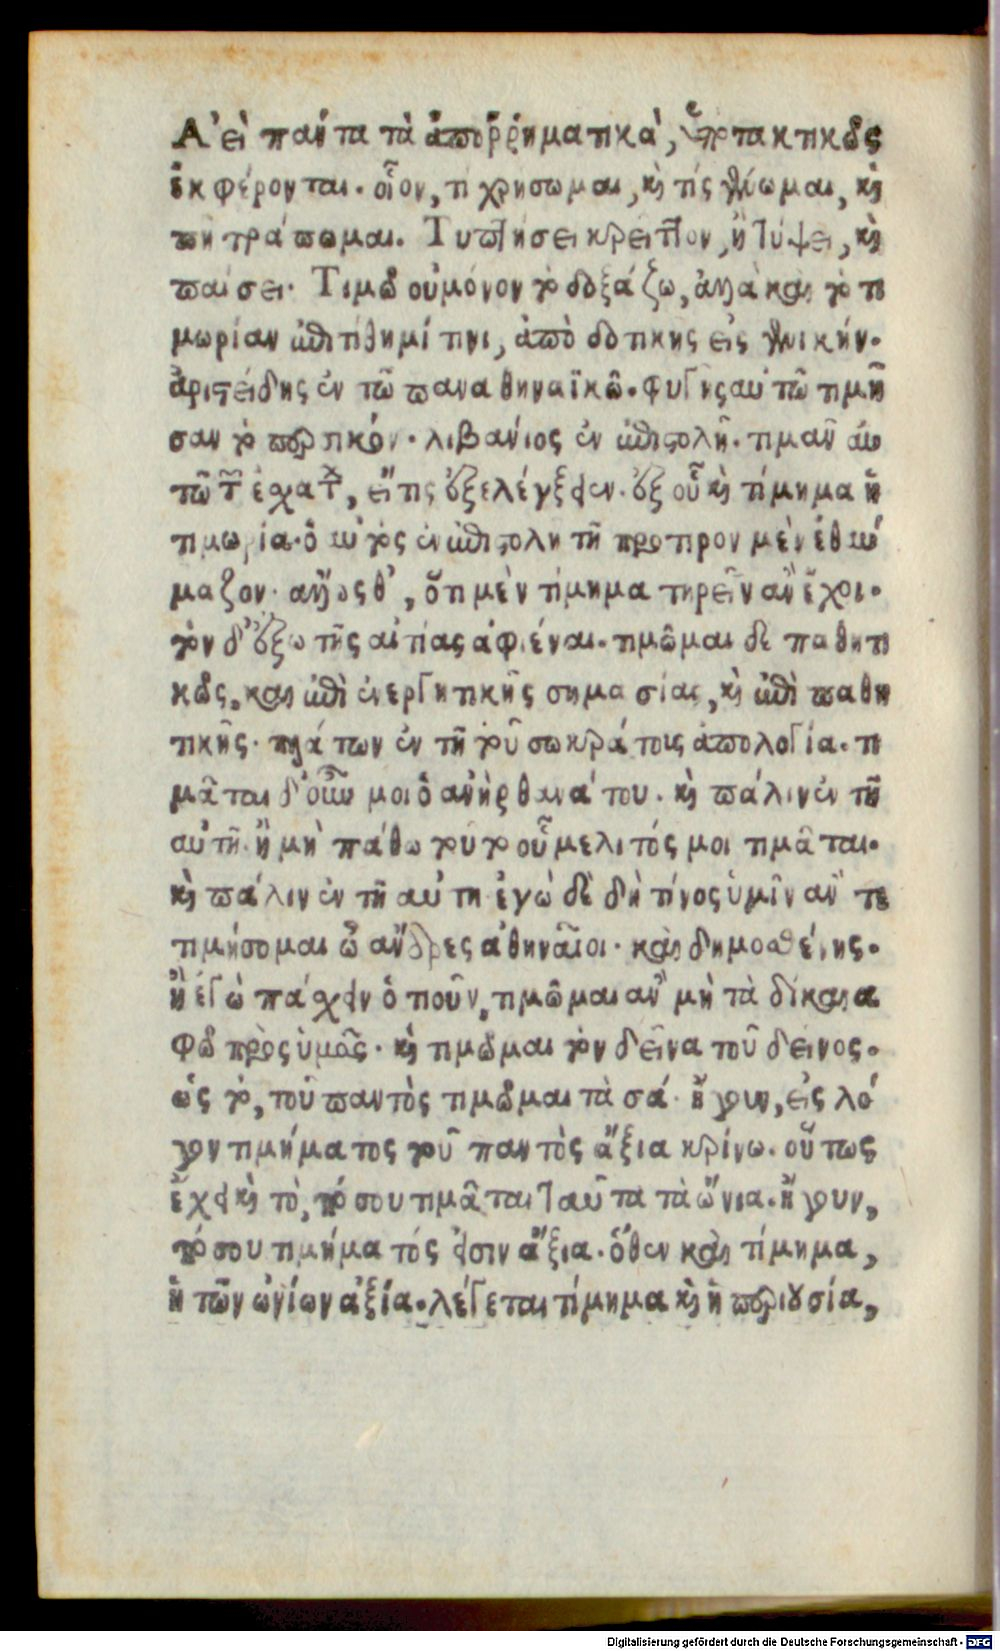 Ἀεὶ πάντα τὰ ἀπορρηματικὰ, ὑποτακτικῶς
ἐκφέρονται. οἷον, τί χρήσωμαι, καὶ τίς γένωμαι, καὶ
πῆ τράπωμαι. Τυπτήσει κρεῖττον, ἢ τύψει, καὶ
παίσει. Τιμῶ οὐ μόνον τὸ δοξάζω, ἀλλὰ καὶ τὸ τι
μωρίαν ἐπιτίθημί τινι, ἀπὸ δοτικῆς εἰς γενικήν.
ἀριστείδης ἐν τῷ παναθηναϊκῶ. φυγῆς αὐτῶ τιμῆ
σαν τὸ πρῶτον. λιβάνιος ἐν ἐπιστολῆ. τιμᾶν αὐ
τῶ τῶν ἐσχάτων, εἴ τις ἐξελέγξειεν. ἐξ οὗ καὶ τίμημα ἡ
τιμωρία. ὁ αὐτὸς ἐν ἐπιστολῆ τῆ πρότερον μὲν ἐθαύ
μαζον. ἄλλως θ', ὅτι μὲν τίμημα τηρεῖν ἂν ἔχοι.
τὸν δ' ἔξω τῆς αἰτίας ἀφιέναι. τιμῶμαι δὲ παθητι
κῶς, καὶ ἐπὶ ἐνεργητικῆς σημασίας, καὶ ἐπὶ παθη
τικῆς. πλάτων ἐν τῆ τοῦ σωκράτους ἀπολογία. τι
μᾶται δ' οὖν μοι ὁ ἀνὴρ θανάτου. καὶ πάλιν ἐν τῆ
αὐτῆ. ἢ μὴ πάθω τοῦτο οὗ μελιτός μοι τιμᾶται.
καὶ πάλιν ἐν τῆ αὐτῆ ἐγὼ δὲ δὴ τίνος ὑμῖν ἀντι
τιμήσομαι ὦ ἄνδρες ἀθηναῖοι. καὶ δημοσθένης.
ἢ ἐγὼ πάσχειν ὁτιοῦν, τιμῶμαι ἂν μὴ τὰ δίκαια
φῶ πρὸς ὑμᾶς. καὶ τιμῶμαι τὸν δεῖνα τοῦ δεῖνος.
ὡς τὸ, τοῦ παντὸς τιμῶμαι τὰ σά. ἤγουν, εἰς λό
γον τιμήματος τοῦ παντὸς ἄξια κρίνω. οὕτως
ἔχει καὶ τὸ, πόσου τιμᾶται ταῦτα τὰ ὤνια. ἤγουν,
πόσου τιμήματός εἰσιν ἄξια. ὅθεν καὶ τίμημα,
ἡ τῶν ὠνίων ἀξία. λέγεται τίμημα καὶ ἡ περιουσία,
Digitalisierung gefördert durch die Deutsche Forschungsgemeinschaft - DFG